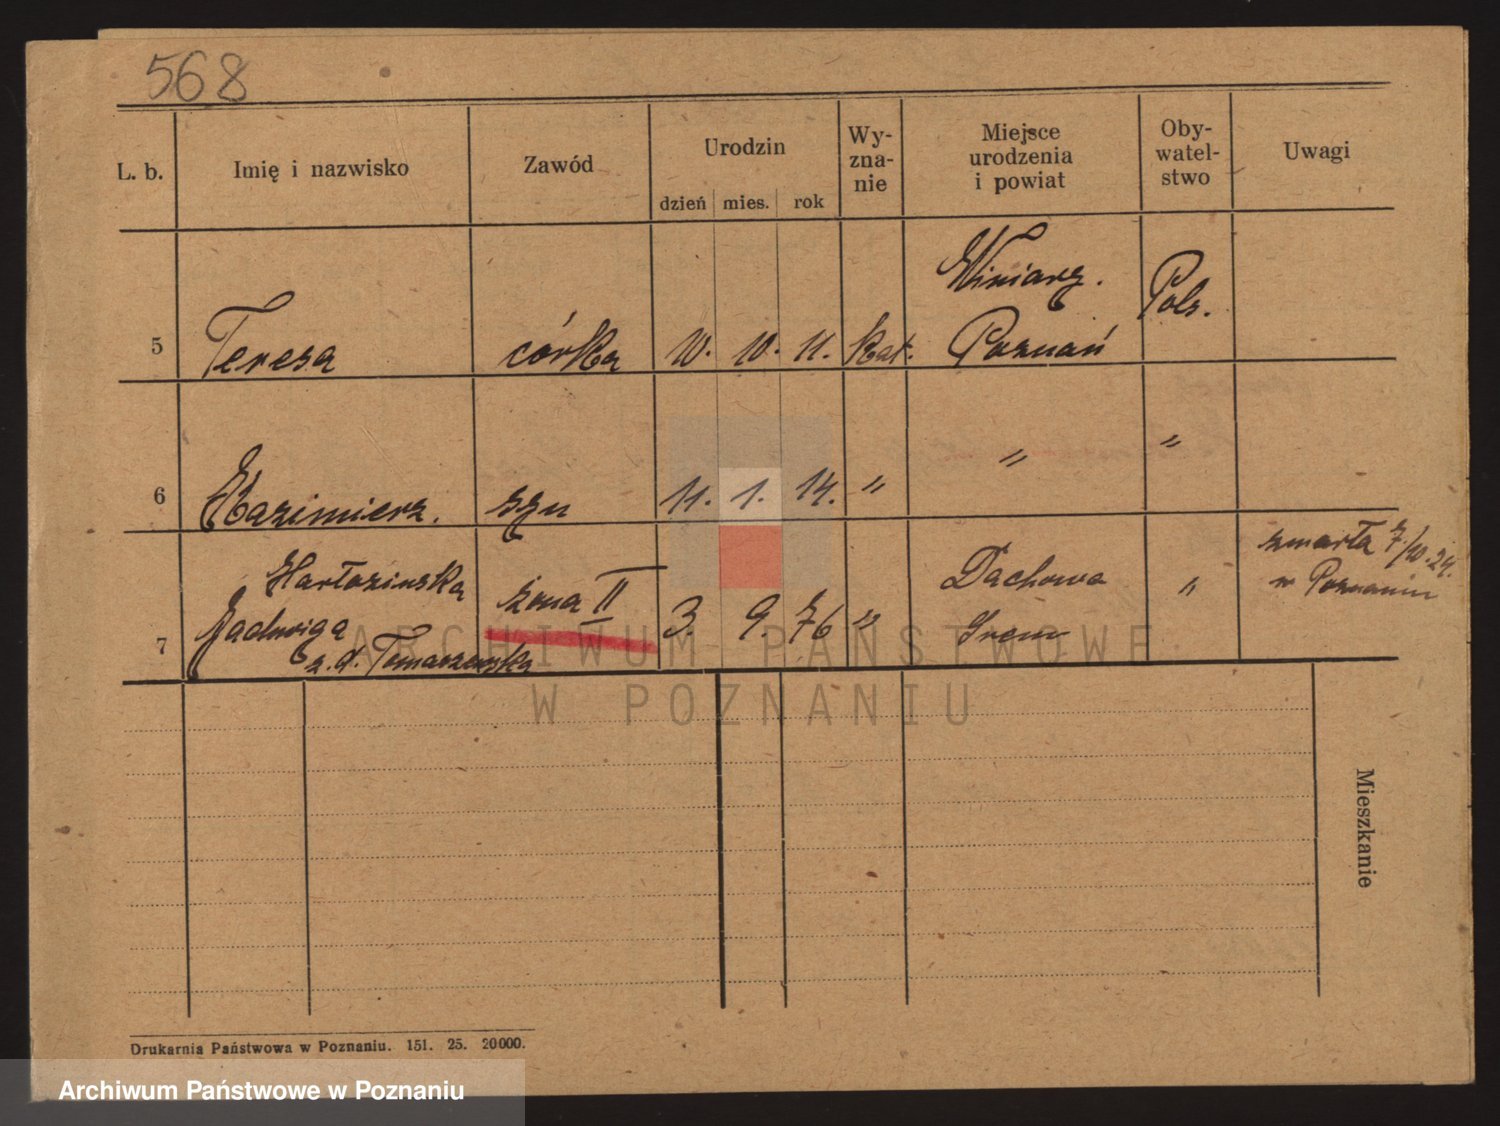 568
L. b.
Imię i nazwisko
Zawód
Urodzin
dzień mies. rok
Wy-
zna-
nie
Miejsce
urodzenia
i powiat
Oby-
watel-
stwo
Uwagi
5 Teresa córka 10. 10. 11. kat.
Winiary.
Poznań
Pols.
6 Kazimierz. syn 11. 1. 14. " " "
7
Hartozinska
Jadwiga
z. d. Tomaszewska
żona II
3. 9. 76 "
Dachowa
Srem
"
zmarła 7/10.24.
w Poznaniu
Mieszkanie
ARCHIWUM PAŃSTWOWE
W POZNANIU
Drukarnia Państwowa w Poznaniu. 151. 25. 20000.
Archiwum Państwowe w Poznaniu